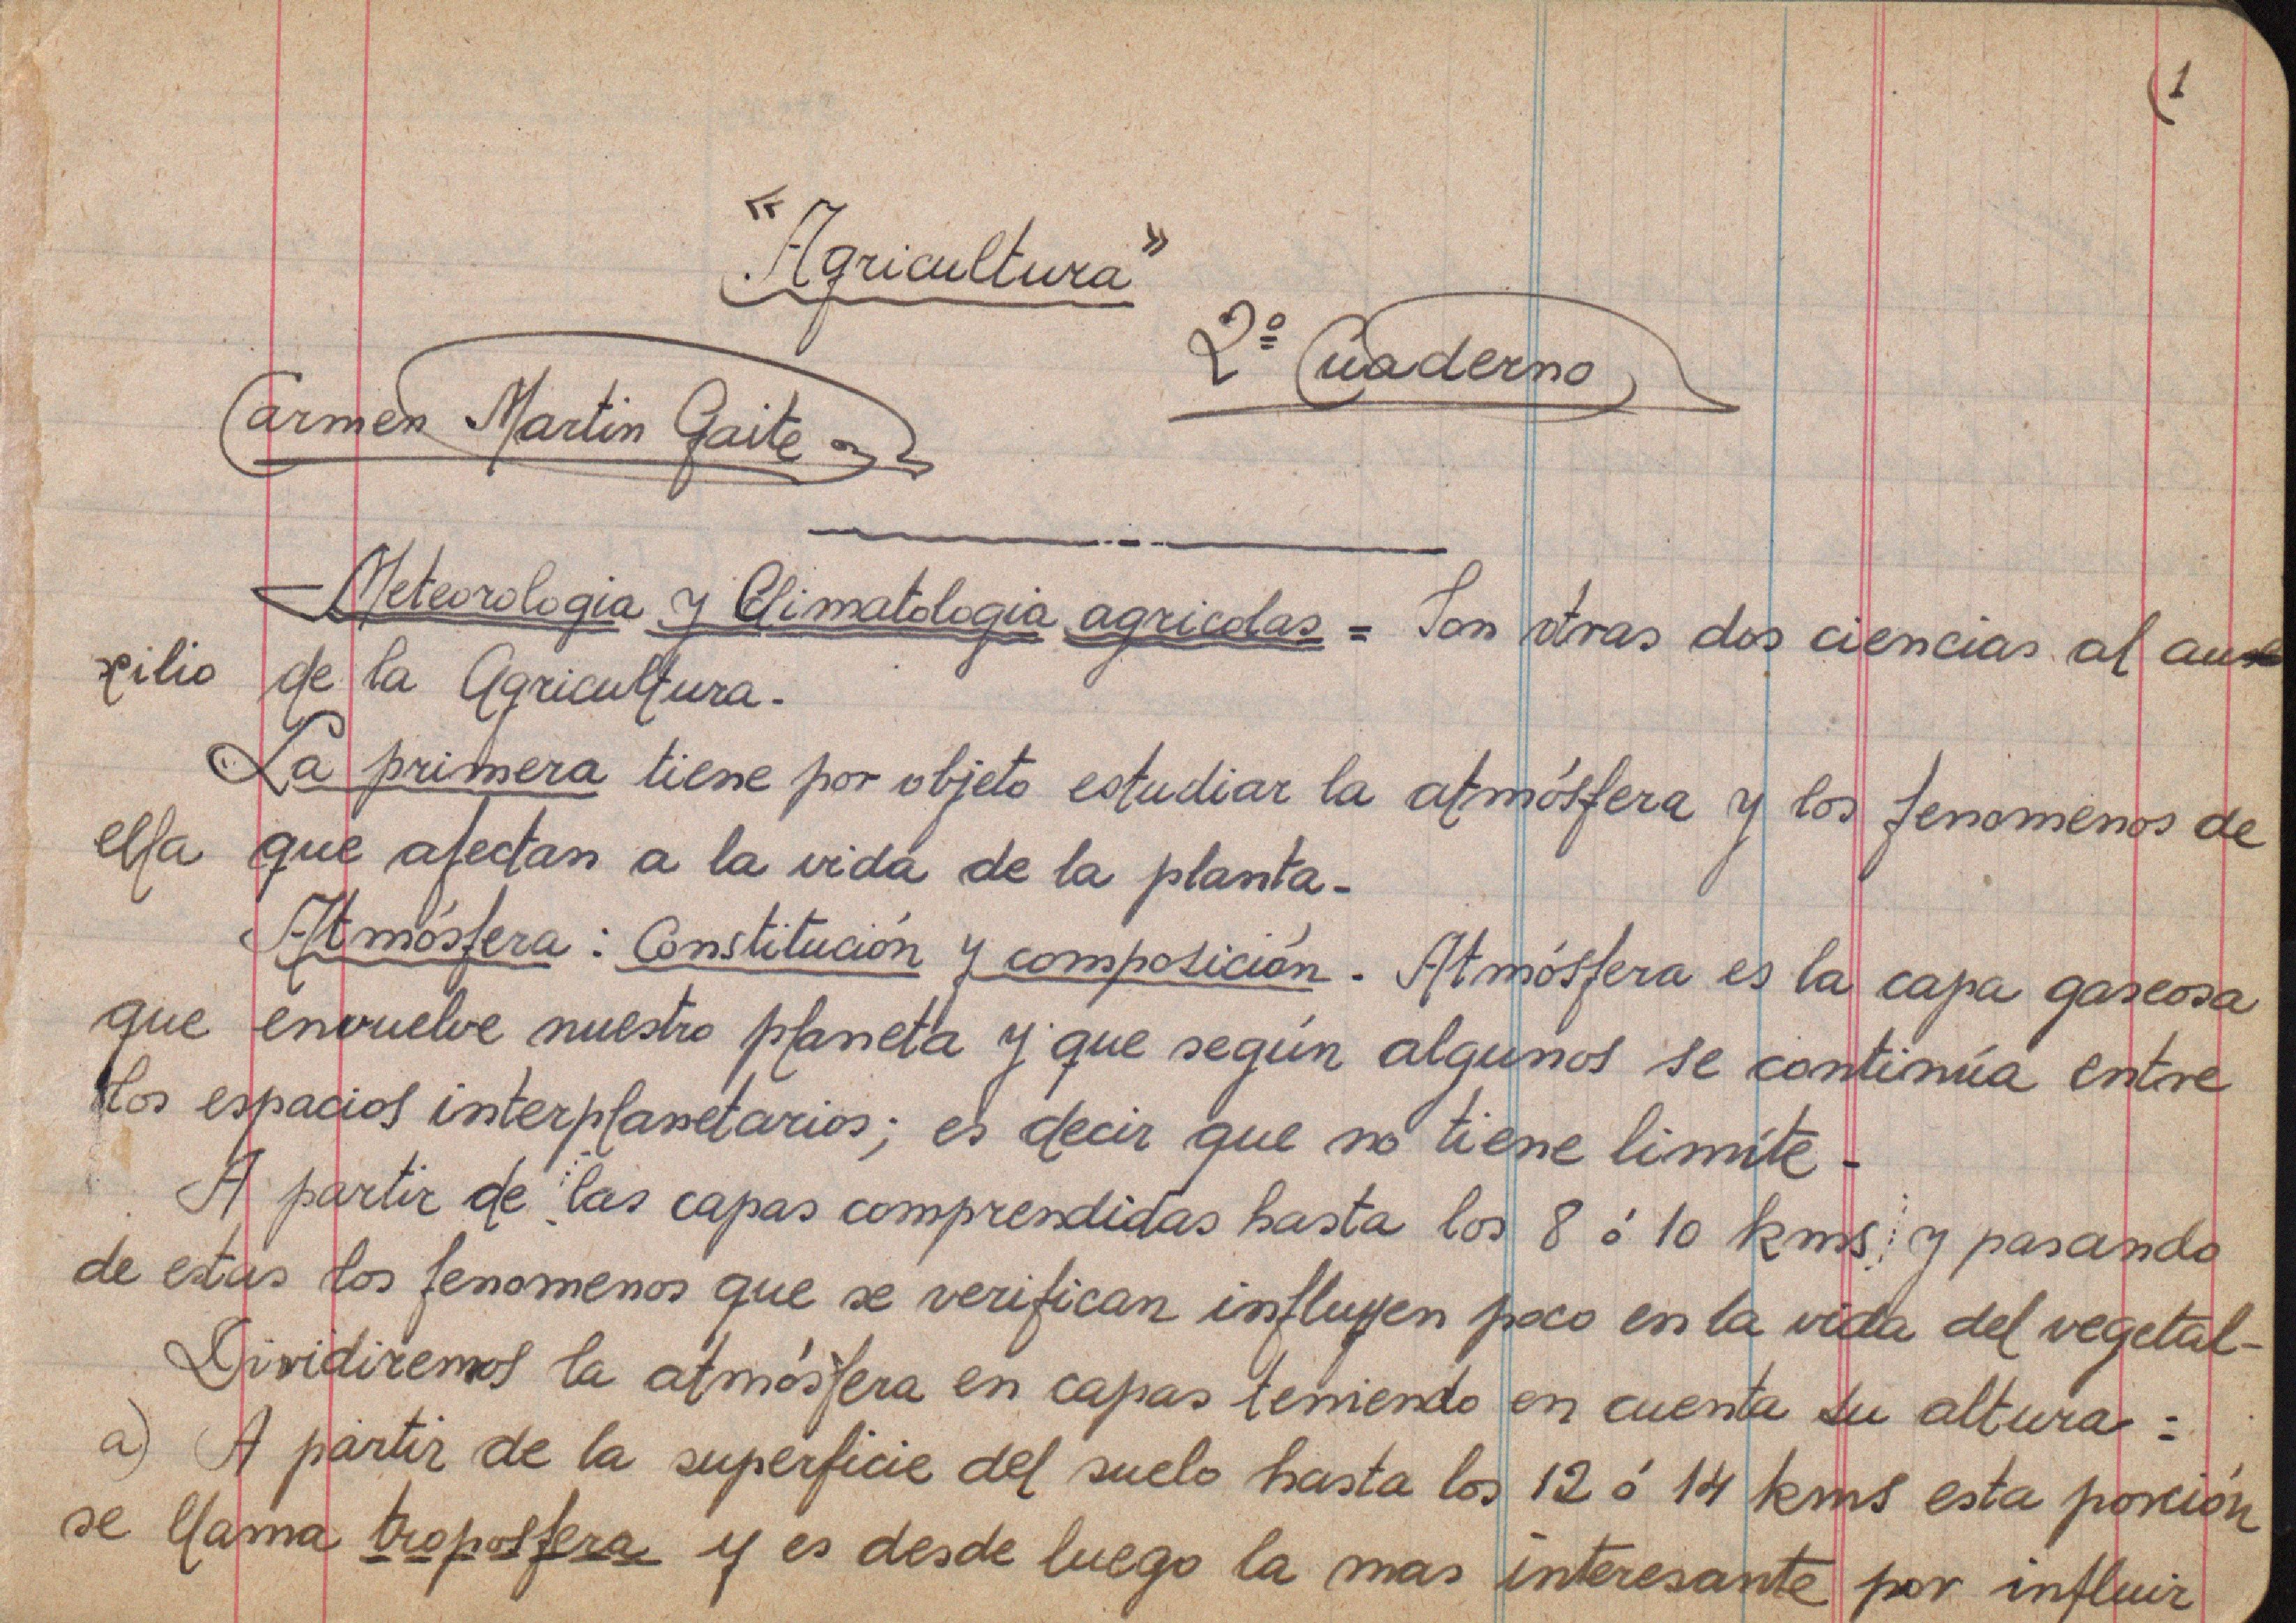 (1
"Agricultura"
2º Cuaderno
Carmen Martin Gaite
Meteorologia y Climatologia agricolas = Son otras dos ciencias al au
xilio de la Agricultura.
La primera tiene por objeto estudiar la atmósfera y los fenomenos de
ella que afectan a la vida de la planta.
Atmósfera: Constitución y composición. Atmósfera es la capa gaseosa
que envuelve nuestro planeta y que según algunos se continúa entre
los espacios interplanetarios; es decir que no tiene limite.
A partir de las capas comprendidas hasta los 8 ó 10 kms y pasando
de estas los fenomenos que se verifican influyen poco en la vida del vegetal.
Dividiremos la atmósfera en capas teniendo en cuenta su altura:
a) A partir de la superficie del suelo hasta los 12 ó 14 kms esta porción
se llama troposfera y es desde luego la mas interesante por influir